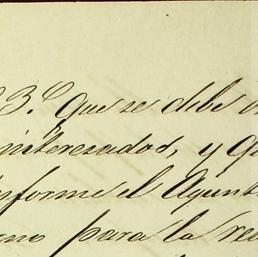 3.º que se debe
interesados, y
informe el Ayunt
para la